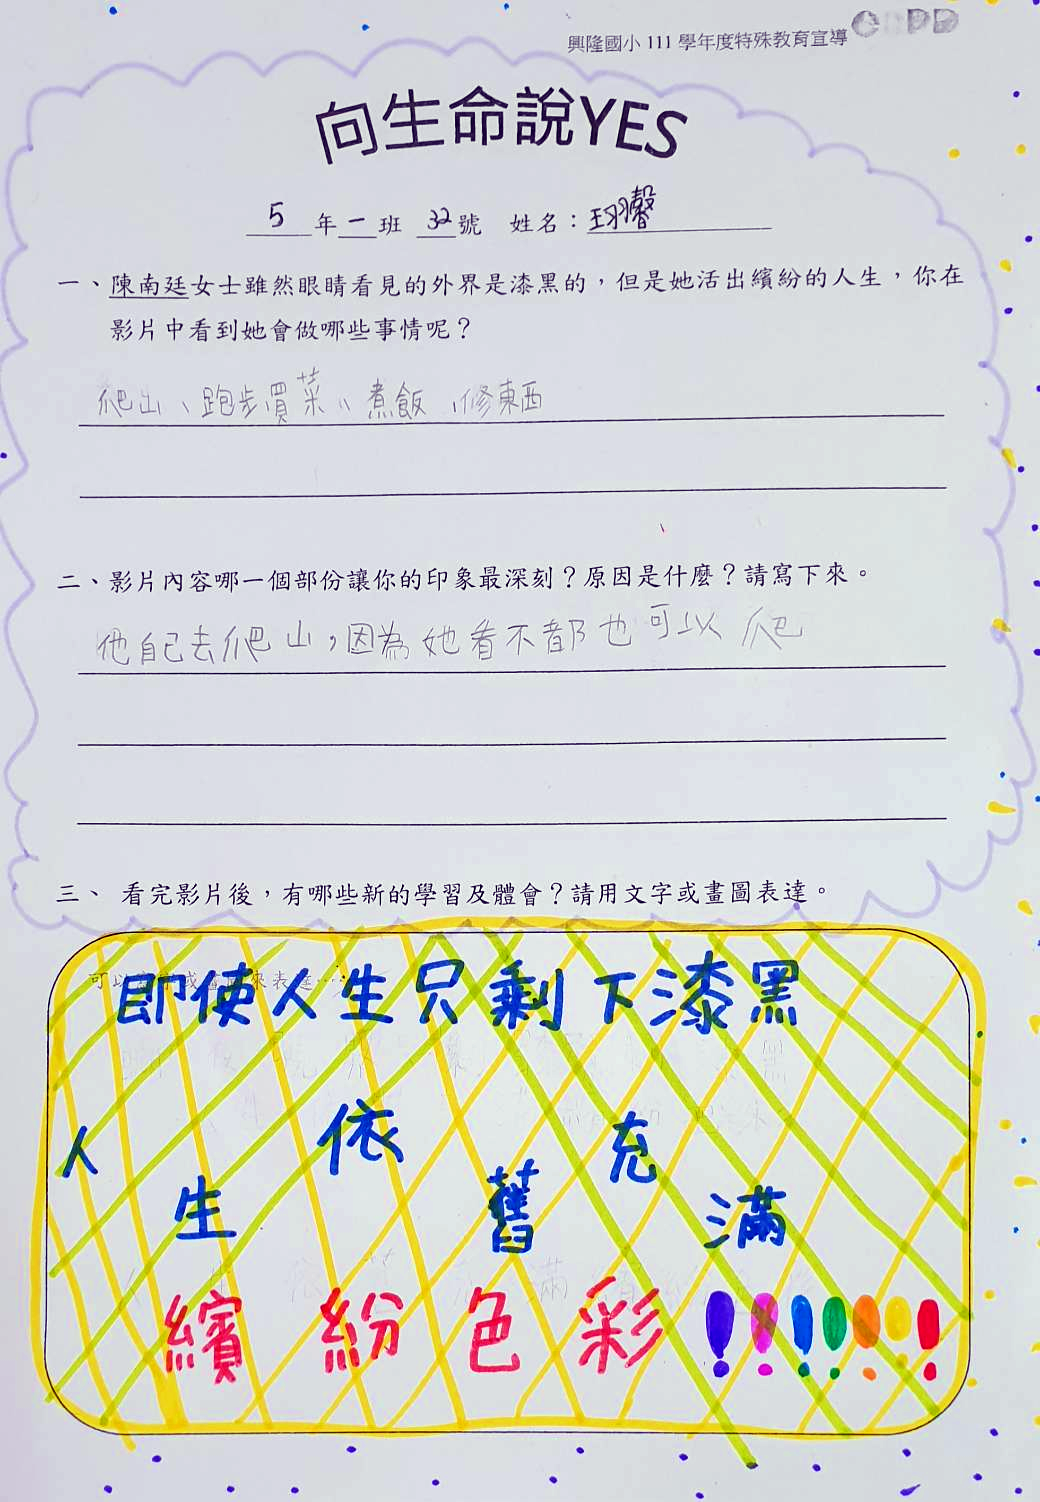 興隆國小 111 學年度特殊教育宣導
GOPD
向生命說YES
5 年 一 班 32 號 姓名：王羽馨
一、陳南廷女士雖然眼睛看見的外界是漆黑的，但是她活出繽紛的人生，你在
影片中看到她會做哪些事情呢？
爬山、跑步買菜、煮飯、修東西
二、影片內容哪一個部份讓你的印象最深刻？原因是什麼？請寫下來。
他自己去爬山，因為她看不都也可以爬
三、 看完影片後，有哪些新的學習及體會？請用文字或畫圖表達。
可以 或畫 來表達……
即使人生只剩下漆黑
人生依舊充滿
繽紛色彩!!!!!!!